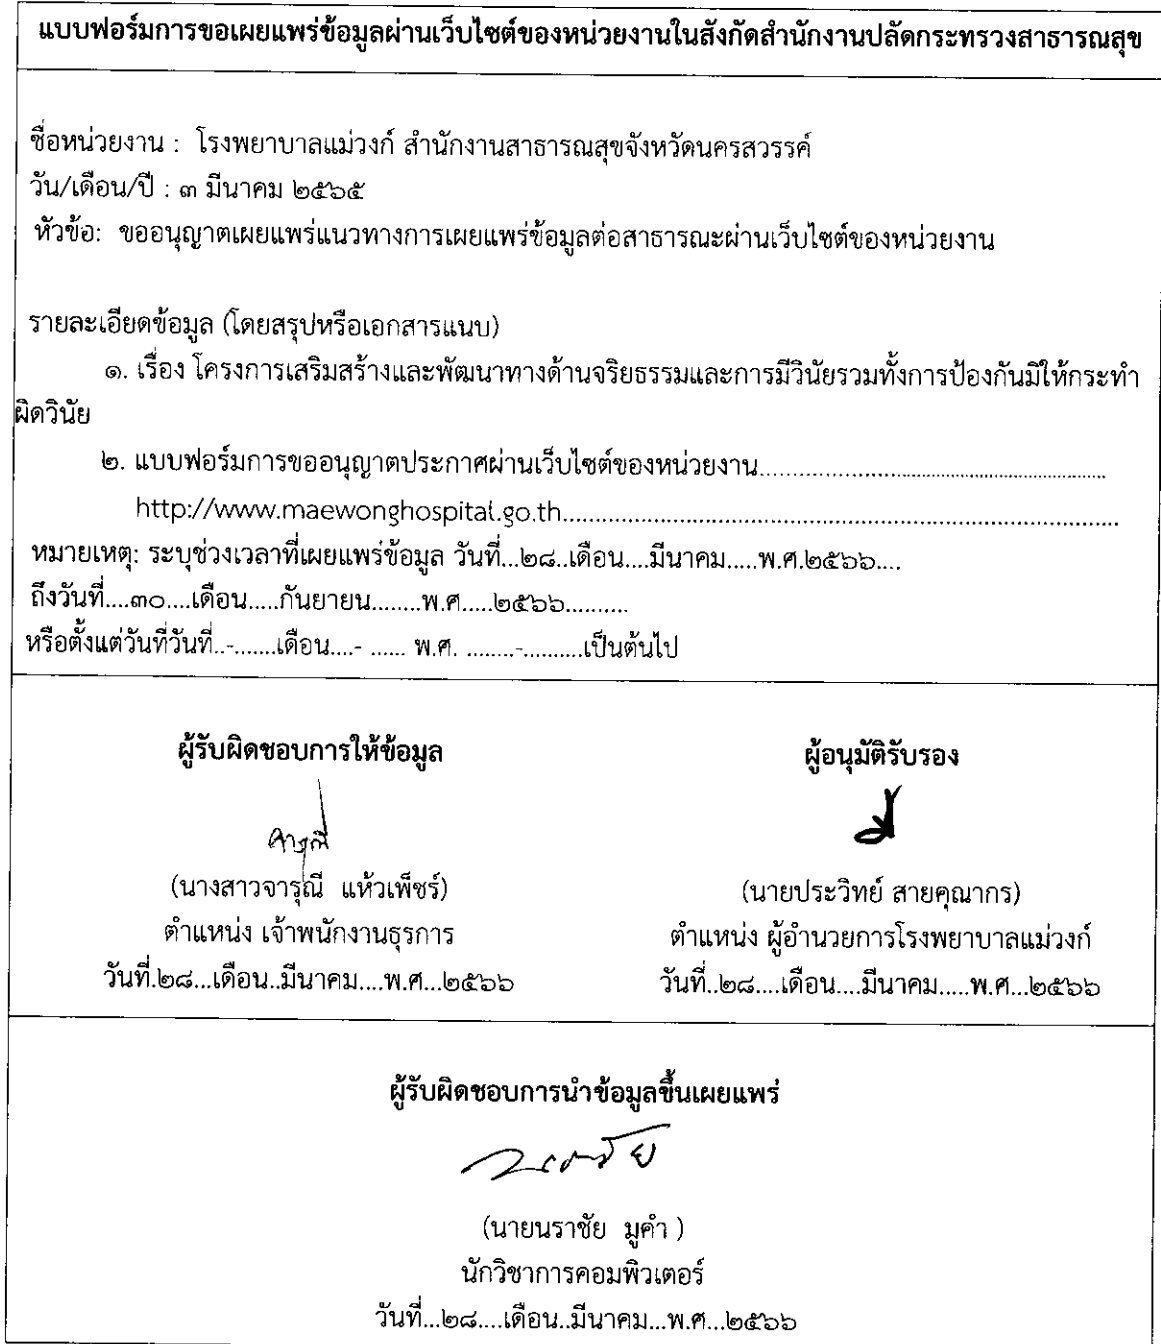 แบบฟอร์มการขอเผยแพร่ข้อมูลผ่านเว็บไซต์ของหน่วยงานในสังกัดสำนักงานปลัดกระทรวงสาธารณสุข
ชื่อหน่วยงาน : โรงพยาบาลแม่วงก์ สำนักงานสาธารณสุขจังหวัดนครสวรรค์
วัน/เดือน/ปี : ๓ มีนาคม ๒๕๖๕
หัวข้อ: ขออนุญาตเผยแพร่แนวทางการเผยแพร่ข้อมูลต่อสาธารณะผ่านเว็บไซต์ของหน่วยงาน
รายละเอียดข้อมูล (โดยสรุปหรือเอกสารแนบ)
๑. เรื่อง โครงการเสริมสร้างและพัฒนาทางด้านจริยธรรมและการมีวินัยรวมทั้งการป้องกันมิให้กระทำ
ผิดวินัย
๒. แบบฟอร์มการขออนุญาตประกาศผ่านเว็บไซต์ของหน่วยงาน..........................................................................
http://www.maewonghospital.go.th................................................................................................
หมายเหตุ: ระบุช่วงเวลาที่เผยแพร่ข้อมูล วันที่...๒๘..เดือน....มีนาคม.....พ.ศ.๒๕๖๖....
ถึงวันที่....๓๐....เดือน.....กันยายน........พ.ศ.....๒๕๖๖..........
หรือตั้งแต่วันที่วันที่..-.......เดือน....- ...... พ.ศ. ........-..........เป็นต้นไป
ผู้รับผิดชอบการให้ข้อมูล
จารุณี
(นางสาวจารุณี แห้วเพ็ชร์)
ตำแหน่ง เจ้าพนักงานธุรการ
วันที่.๒๘...เดือน..มีนาคม....พ.ศ...๒๕๖๖
ผู้อนุมัติรับรอง
(นายประวิทย์ สายคุณากร)
ตำแหน่ง ผู้อำนวยการโรงพยาบาลแม่วงก์
วันที่..๒๘....เดือน....มีนาคม.....พ.ศ...๒๕๖๖
ผู้รับผิดชอบการนำข้อมูลขึ้นเผยแพร่
(นายนราชัย มูคำ )
นักวิชาการคอมพิวเตอร์
วันที่...๒๘....เดือน..มีนาคม...พ.ศ...๒๕๖๖